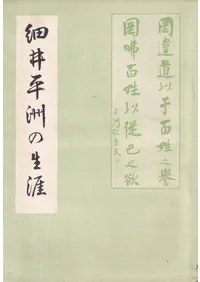 細井平洲の生涯
罔違道以干百姓之譽
罔咈百姓以從己之欲